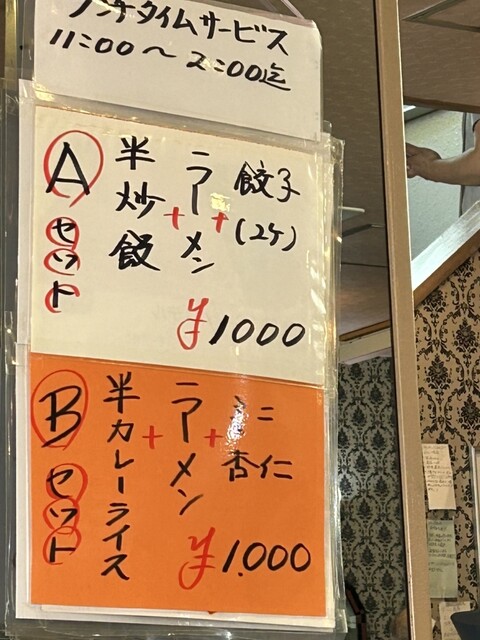 ランチタイムサービス
11:00〜2:00迄
Aセット
半炒飯
+
ラーメン
+
餃子
(2ケ)
¥1000
Bセット
半カレーライス
+
ラーメン
+
ミニ
杏仁
¥1.000